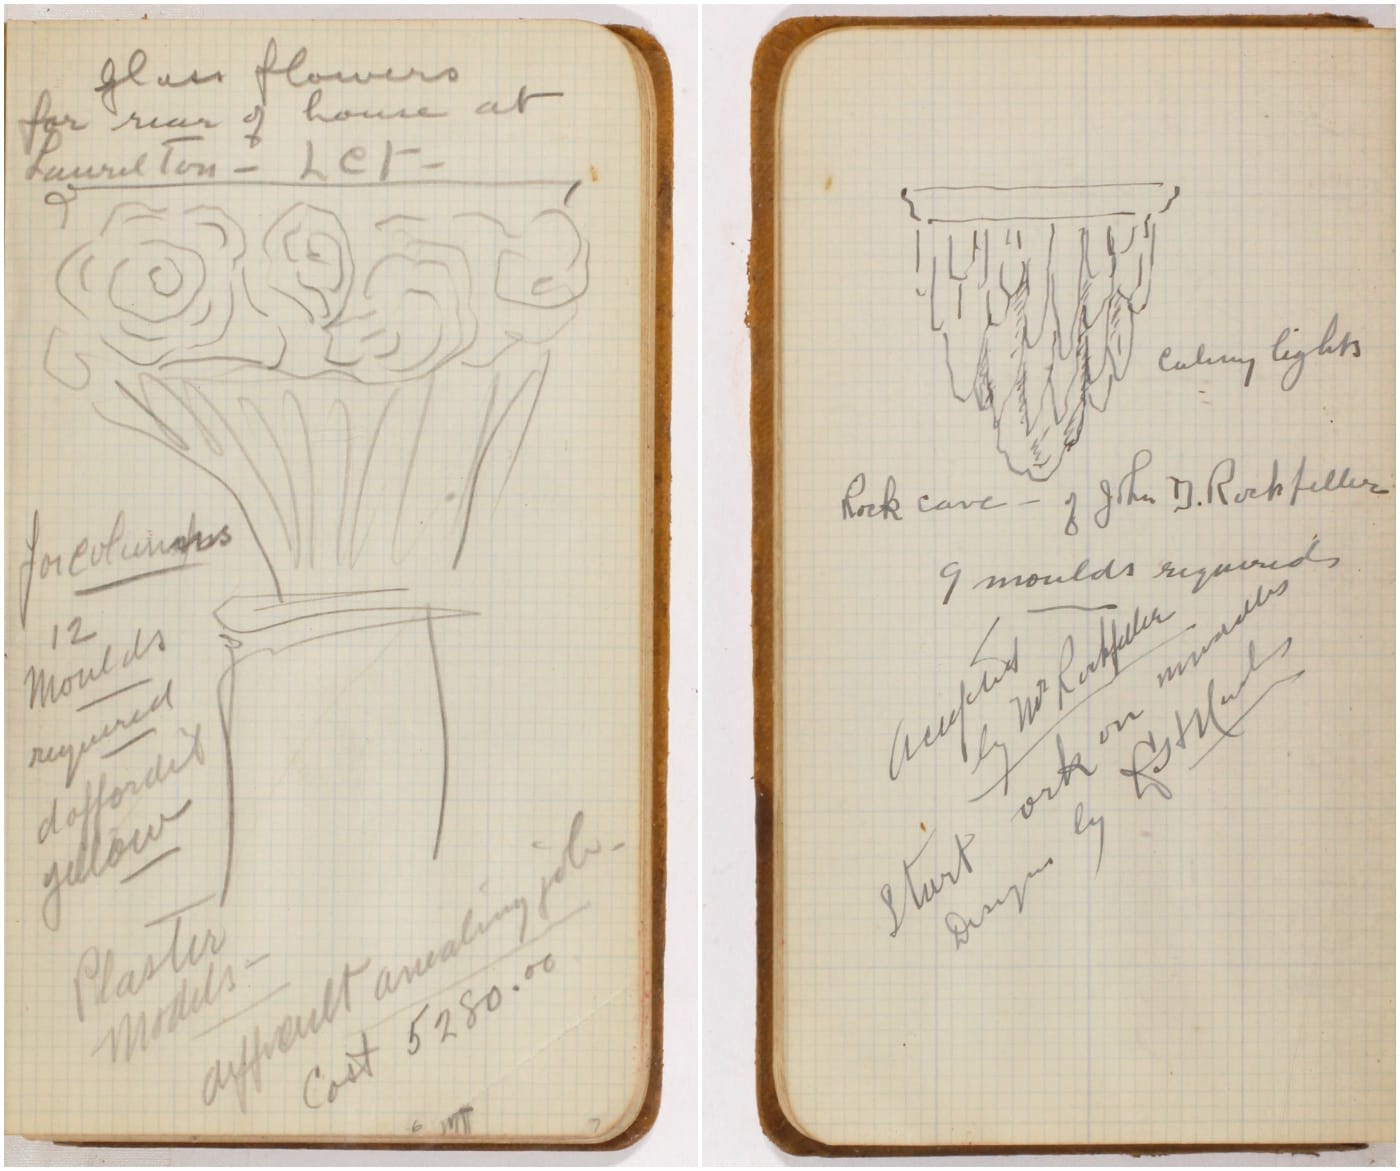 glass flowers
for rear of house at
Laurelton - LCT -
for columns
12
Moulds
required
daffordil
yellow
Plaster
Models -
difficult anealing job -
Cost 5280.00
lights
Rock cave - of John D. Rockfeller
9 moulds required
Accepted
by Mr Rockfeller
Start work on moulds
Designs by